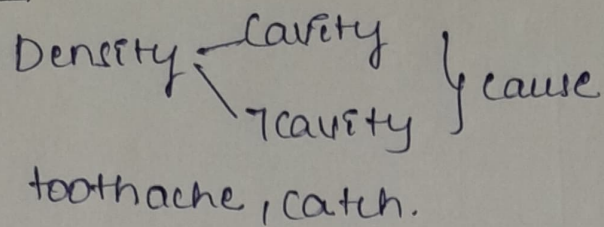 Density cavity
¬cavity } cause
toothache, catch.